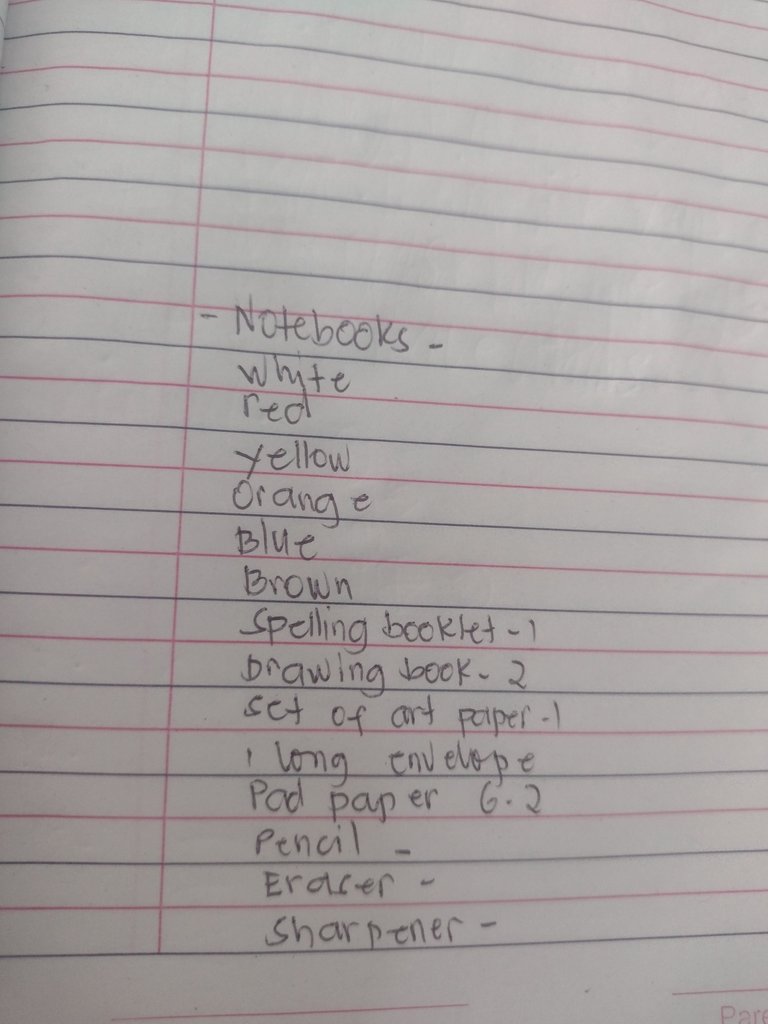 - Notebooks -
Whyte
red
yellow
Orange
Blue
Brown
Spelling booklet - 1
Drawing book - 2
set of art paper - 1
1 long envelope
Pad paper G. 2
Pencil -
Eraser -
sharpener -
Pare